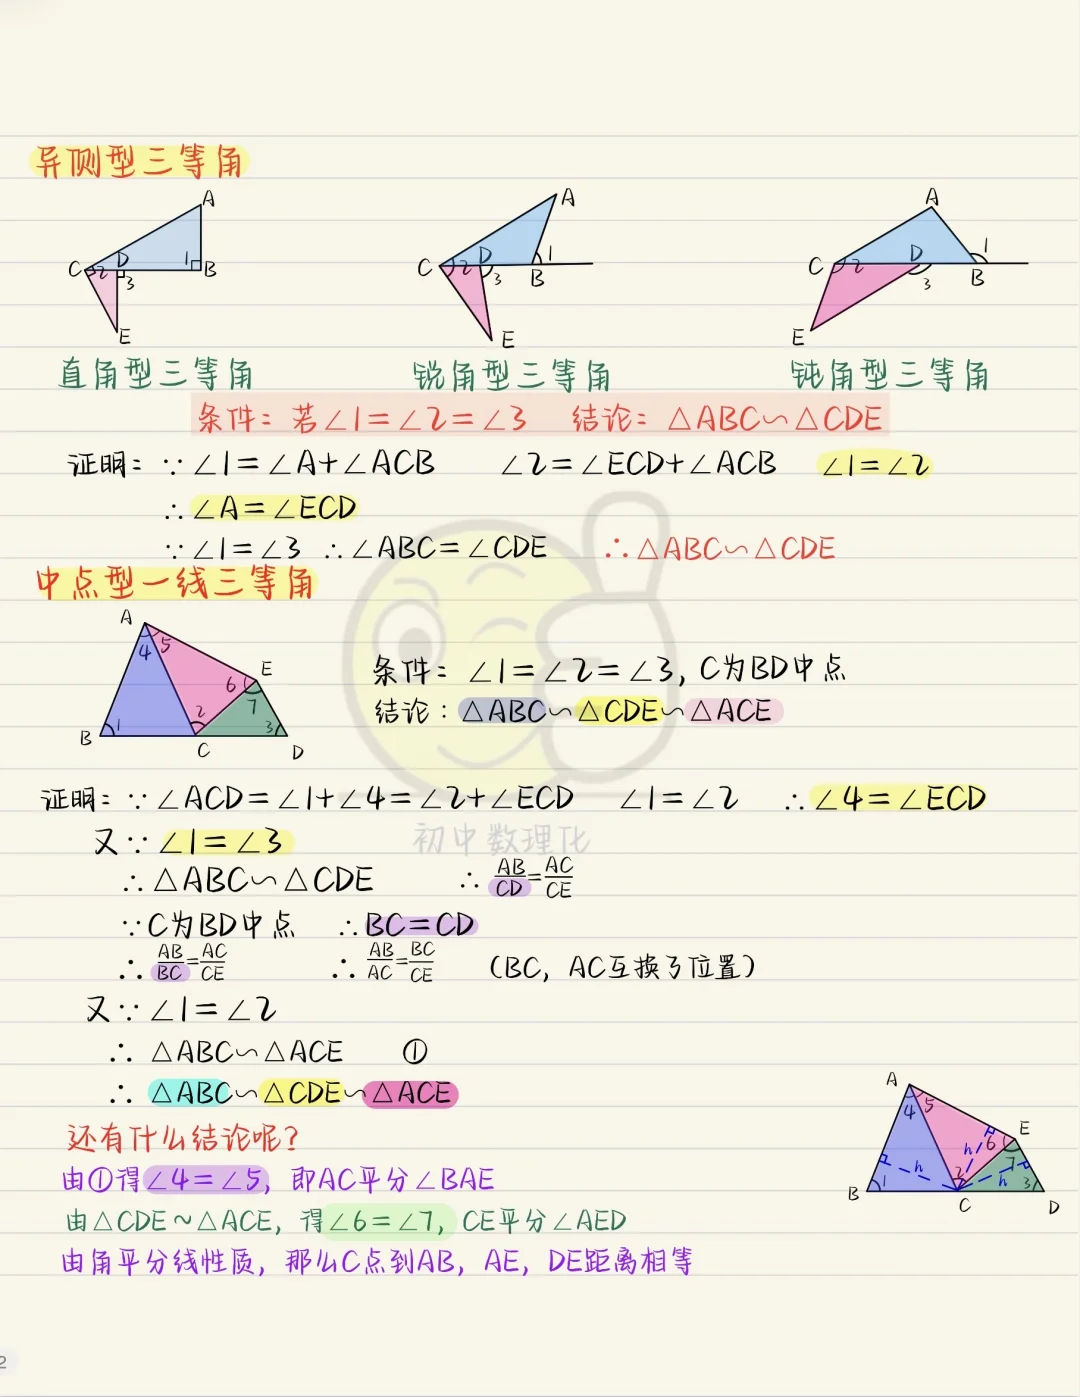 异侧型三等角
A
C 2 D 1 B
3
E
A
C 2 D 1
3 B
E
A
C 2 D 1
3 B
E
直角型三等角 锐角型三等角 钝角型三等角
条件：若∠1=∠2=∠3 结论：△ABC∽△CDE
证明：∵∠1=∠A+∠ACB ∠2=∠ECD+∠ACB ∠1=∠2
∴∠A=∠ECD
∵∠1=∠3 ∴∠ABC=∠CDE ∴△ABC∽△CDE
中点型一线三等角
A
4 5
E
6
7
B 1 2 3
C D
条件：∠1=∠2=∠3，C为BD中点
结论：△ABC∽△CDE∽△ACE
证明：∵∠ACD=∠1+∠4=∠2+∠ECD ∠1=∠2 ∴∠4=∠ECD
初中数理化
又∵∠1=∠3
∴△ABC∽△CDE ∴AB/CD=AC/CE
∵C为BD中点 ∴BC=CD
∴AB/BC=AC/CE ∴AB/AC=BC/CE （BC，AC互换了位置）
又∵∠1=∠2
∴△ABC∽△ACE ①
∴△ABC∽△CDE∽△ACE
还有什么结论呢？
由①得∠4=∠5，即AC平分∠BAE
由△CDE~△ACE，得∠6=∠7，CE平分∠AED
由角平分线性质，那么C点到AB，AE，DE距离相等
A
4 5
E
h 6
7
h h
B 1 2 3
C D
2